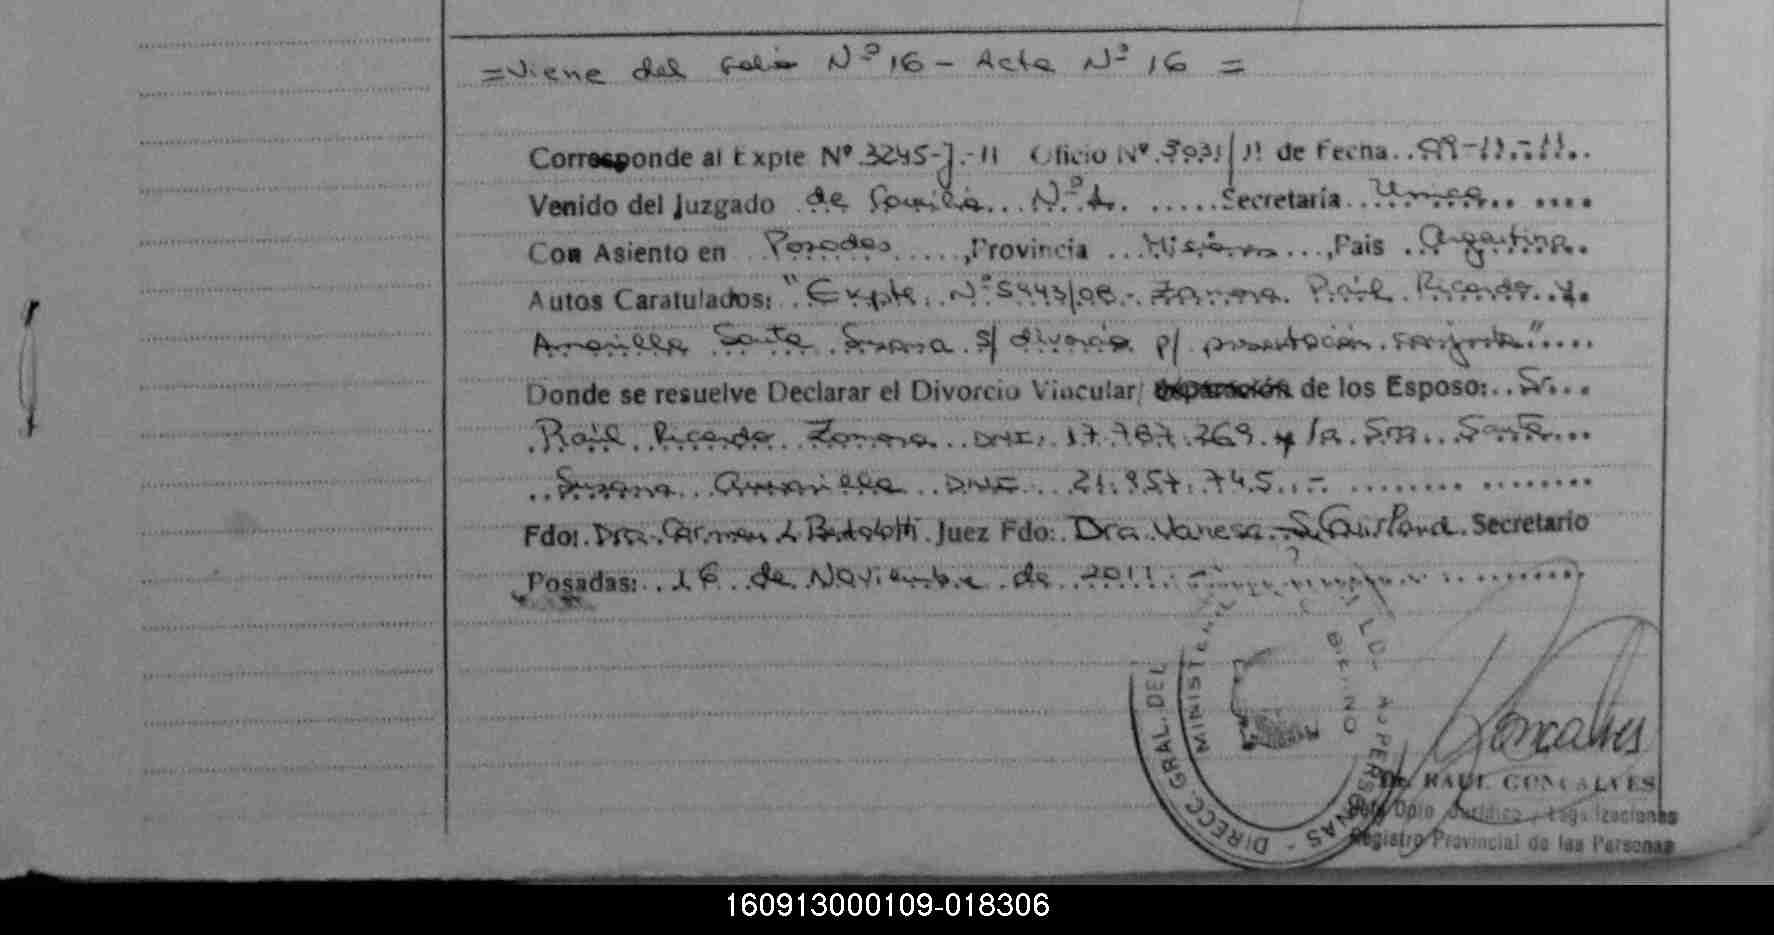 =Viene del folio Nº 16 - Acta Nº 16 =
Corresponde al Expte Nº 3245-J-11 Oficio Nº 3031/11 de Fecha 09-11-11
Venido del Juzgado de Familia Nº 1 Secretaría Unica
Con Asiento en Posadas, Provincia Misiones, Pais Argentina
Autos Caratulados: "Expte. Nº 5443/08 - Zamora Raúl Ricardo y
Amarilla Santa Susana s/ divorcio p/ presentación conjunta"
Donde se resuelve Declarar el Divorcio Vincular/ de los Esposo: Sr.
Raúl Ricardo Zamora DNI. 17.787.269 y la Sra. Santa
Susana Amarilla DNI 21.957.745.-
Fdo: Dra. Carmen L Bertolotti Juez Fdo: Dra Vanesa S. Secretario
Posadas: 16 de Noviembre de 2011.-
DIRECC. GRAL. DEL PERSONAS
MINISTE
Goncalves
Dr. RAUL GONCALVES
Jefe Dpto Jurídico y Legalizaciones
Registro Provincial de las Personas
160913000109-018306